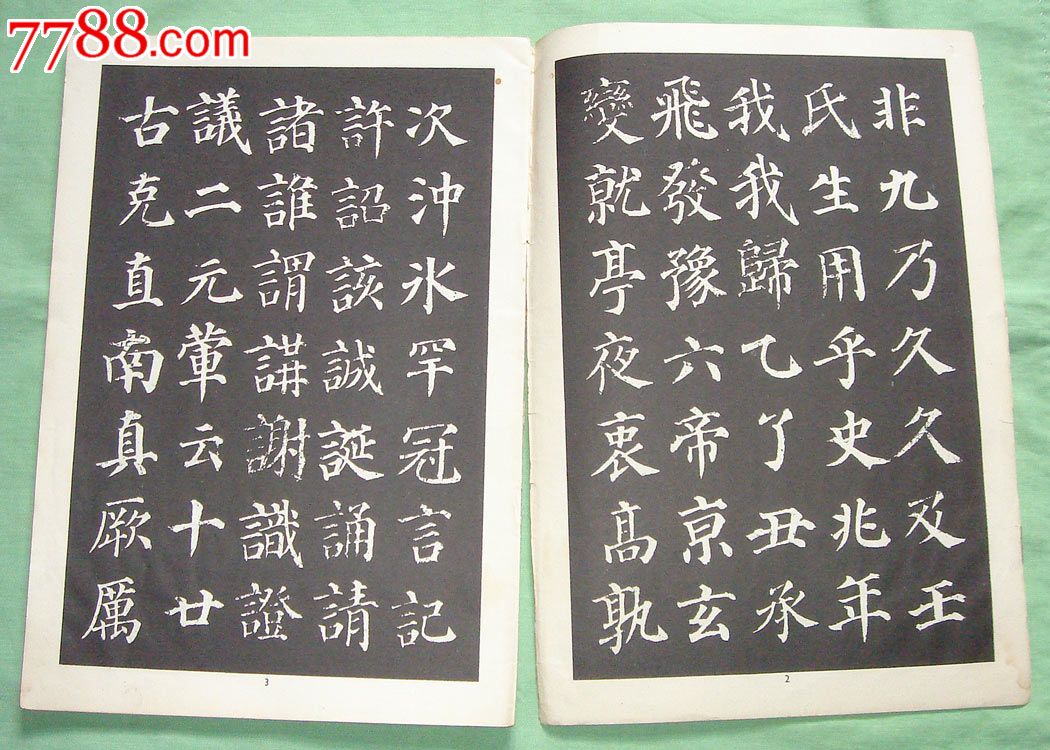 非九乃久久及壬
氏生用乎史兆年
我我歸乙了丑承
飛發豫六帝亰玄
變就亭夜衷髙孰
2
次沖氷罕冠言記
許詔該誠誕誦請
諸誰謂講謝識證
議二元葷云十廿
古克直南真厥厲
3
7788.com